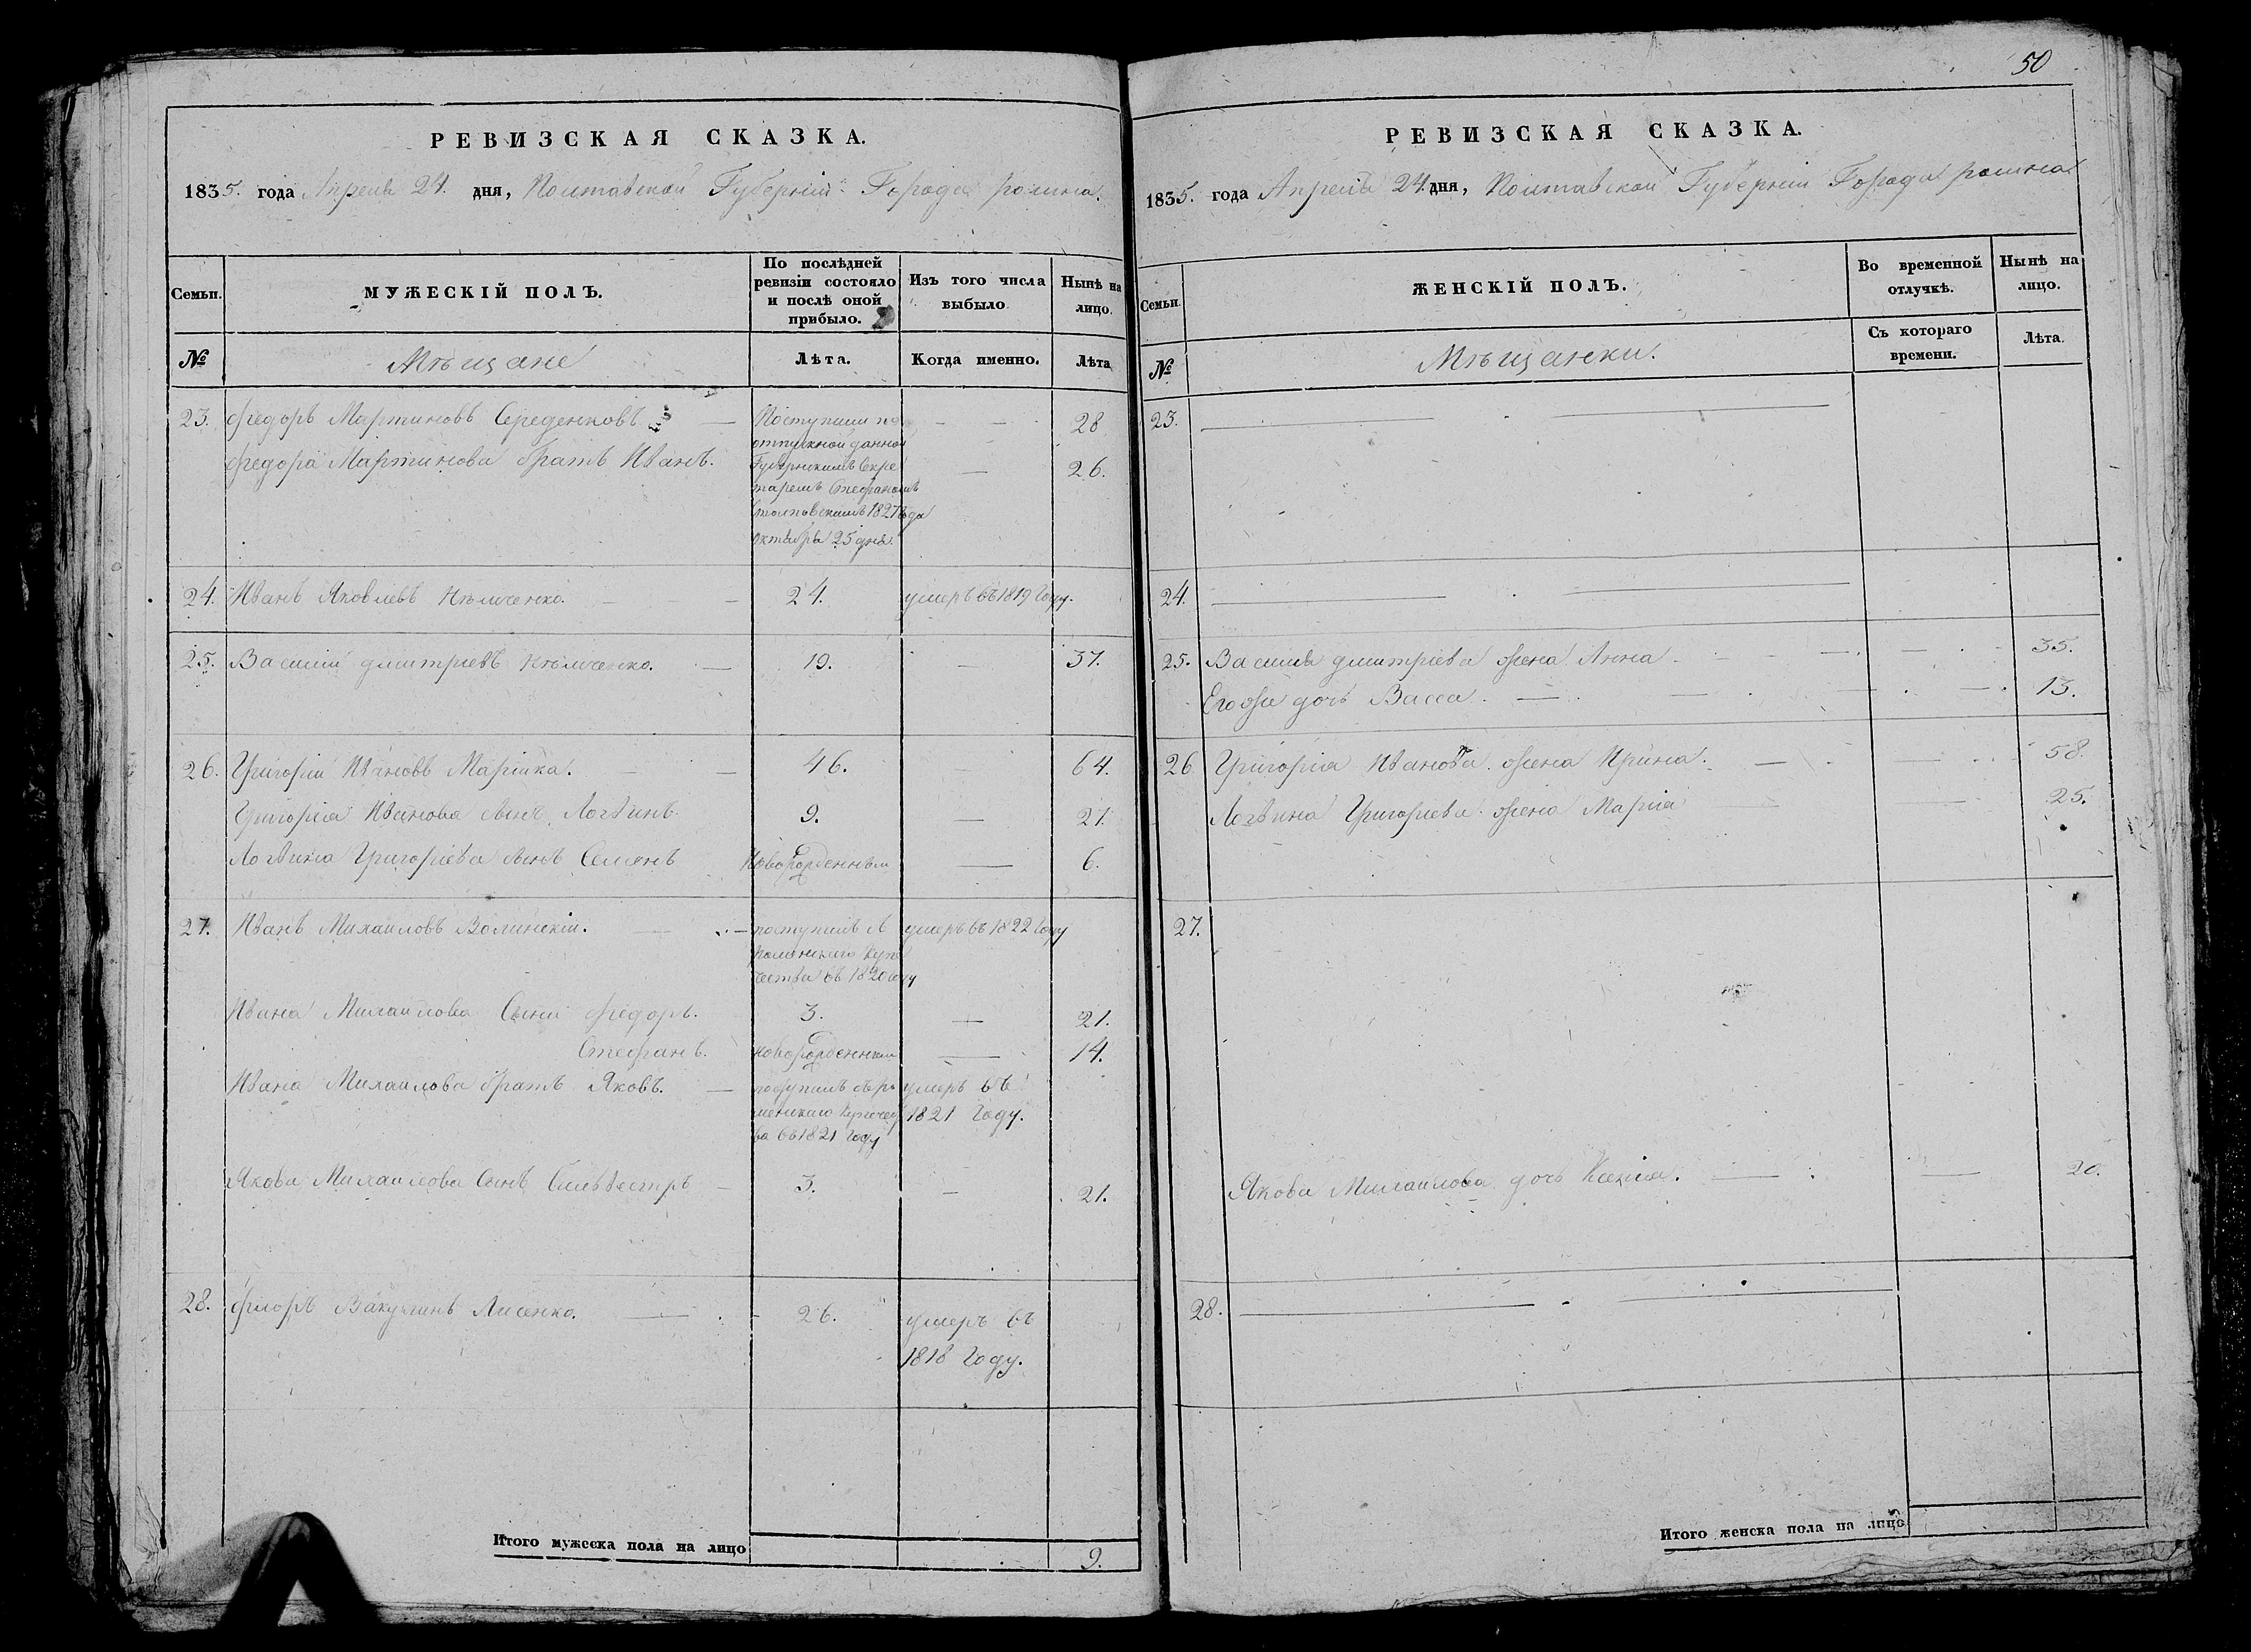 РЕВИЗСКАЯ СКАЗКА.
1835. года Апреля 24. дня, Полтавской Губерніи Города ромна.
Семьи.
МУЖЕСКІЙ ПОЛЪ.
По послѣдней ревизіи состояло и послѣ оной прибыло.
Изъ того числа выбыло
Нынѣ на лицо.
№
Мѣщане
Лѣта.
Когда именно.
Лѣта
23. Федоръ Мартиновъ Середенковъ — Поступили по — 28
отпускной данной
Федора Мартинова братъ Иванъ. Губернскимъ Секре — 26.
таремъ Стефаномъ
1827 года
октября 25 дня.
24. Иванъ Яковлевъ — 24. умеръ въ 1819 Году.
25. Василій дмитріевъ — 19. — 37.
26. Григорій Ивановъ Марїйка. — 46. — 64.
Григорія Иванова сынъ Логвинъ. 9. — 27.
Логвина Григоріева сынъ Семенъ Новорожденный — 6.
27. Иванъ Михайловъ Волинскій. — поступилъ с умеръ въ 1822 Году
роменского Купе
чества въ 1820 году
Ивана Михайлова Сыны Федоръ. 3. — 21.
Стефанъ. новорожденный — 14.
Ивана Михайлова братъ Яковъ. — поступилъ съ ро умеръ въ
менскаго Купечес 1821 Году.
ва въ 1821 году
Якова Михайлова сынъ Сильвестръ — 3. — 21.
28. Флоръ Вакулинъ Лисенко. — 26. умеръ въ
1818 Году.
Итого мужеска пола на лицо 9.
50
РЕВИЗСКАЯ СКАЗКА.
1835. года Апреля 24. дня, Полтавской Губерніи Города ромна
Семьи.
ЖЕНСКІЙ ПОЛЪ.
Во временной отлучкѣ.
Нынѣ на лицо.
№
Мѣщанки.
Съ котораго времени.
Лѣта.
23. —
24. —
25. Василія дмитріева жена Анна — 35.
Его же дочь Васса. — 13.
26 Григорія Иванова жена Ирина. — 58.
Логвина Григоріева жена Марія — 25.
27.
Якова Михайлова дочь Ксенія. — 20.
28. —
Итого женска пола на лицо 5